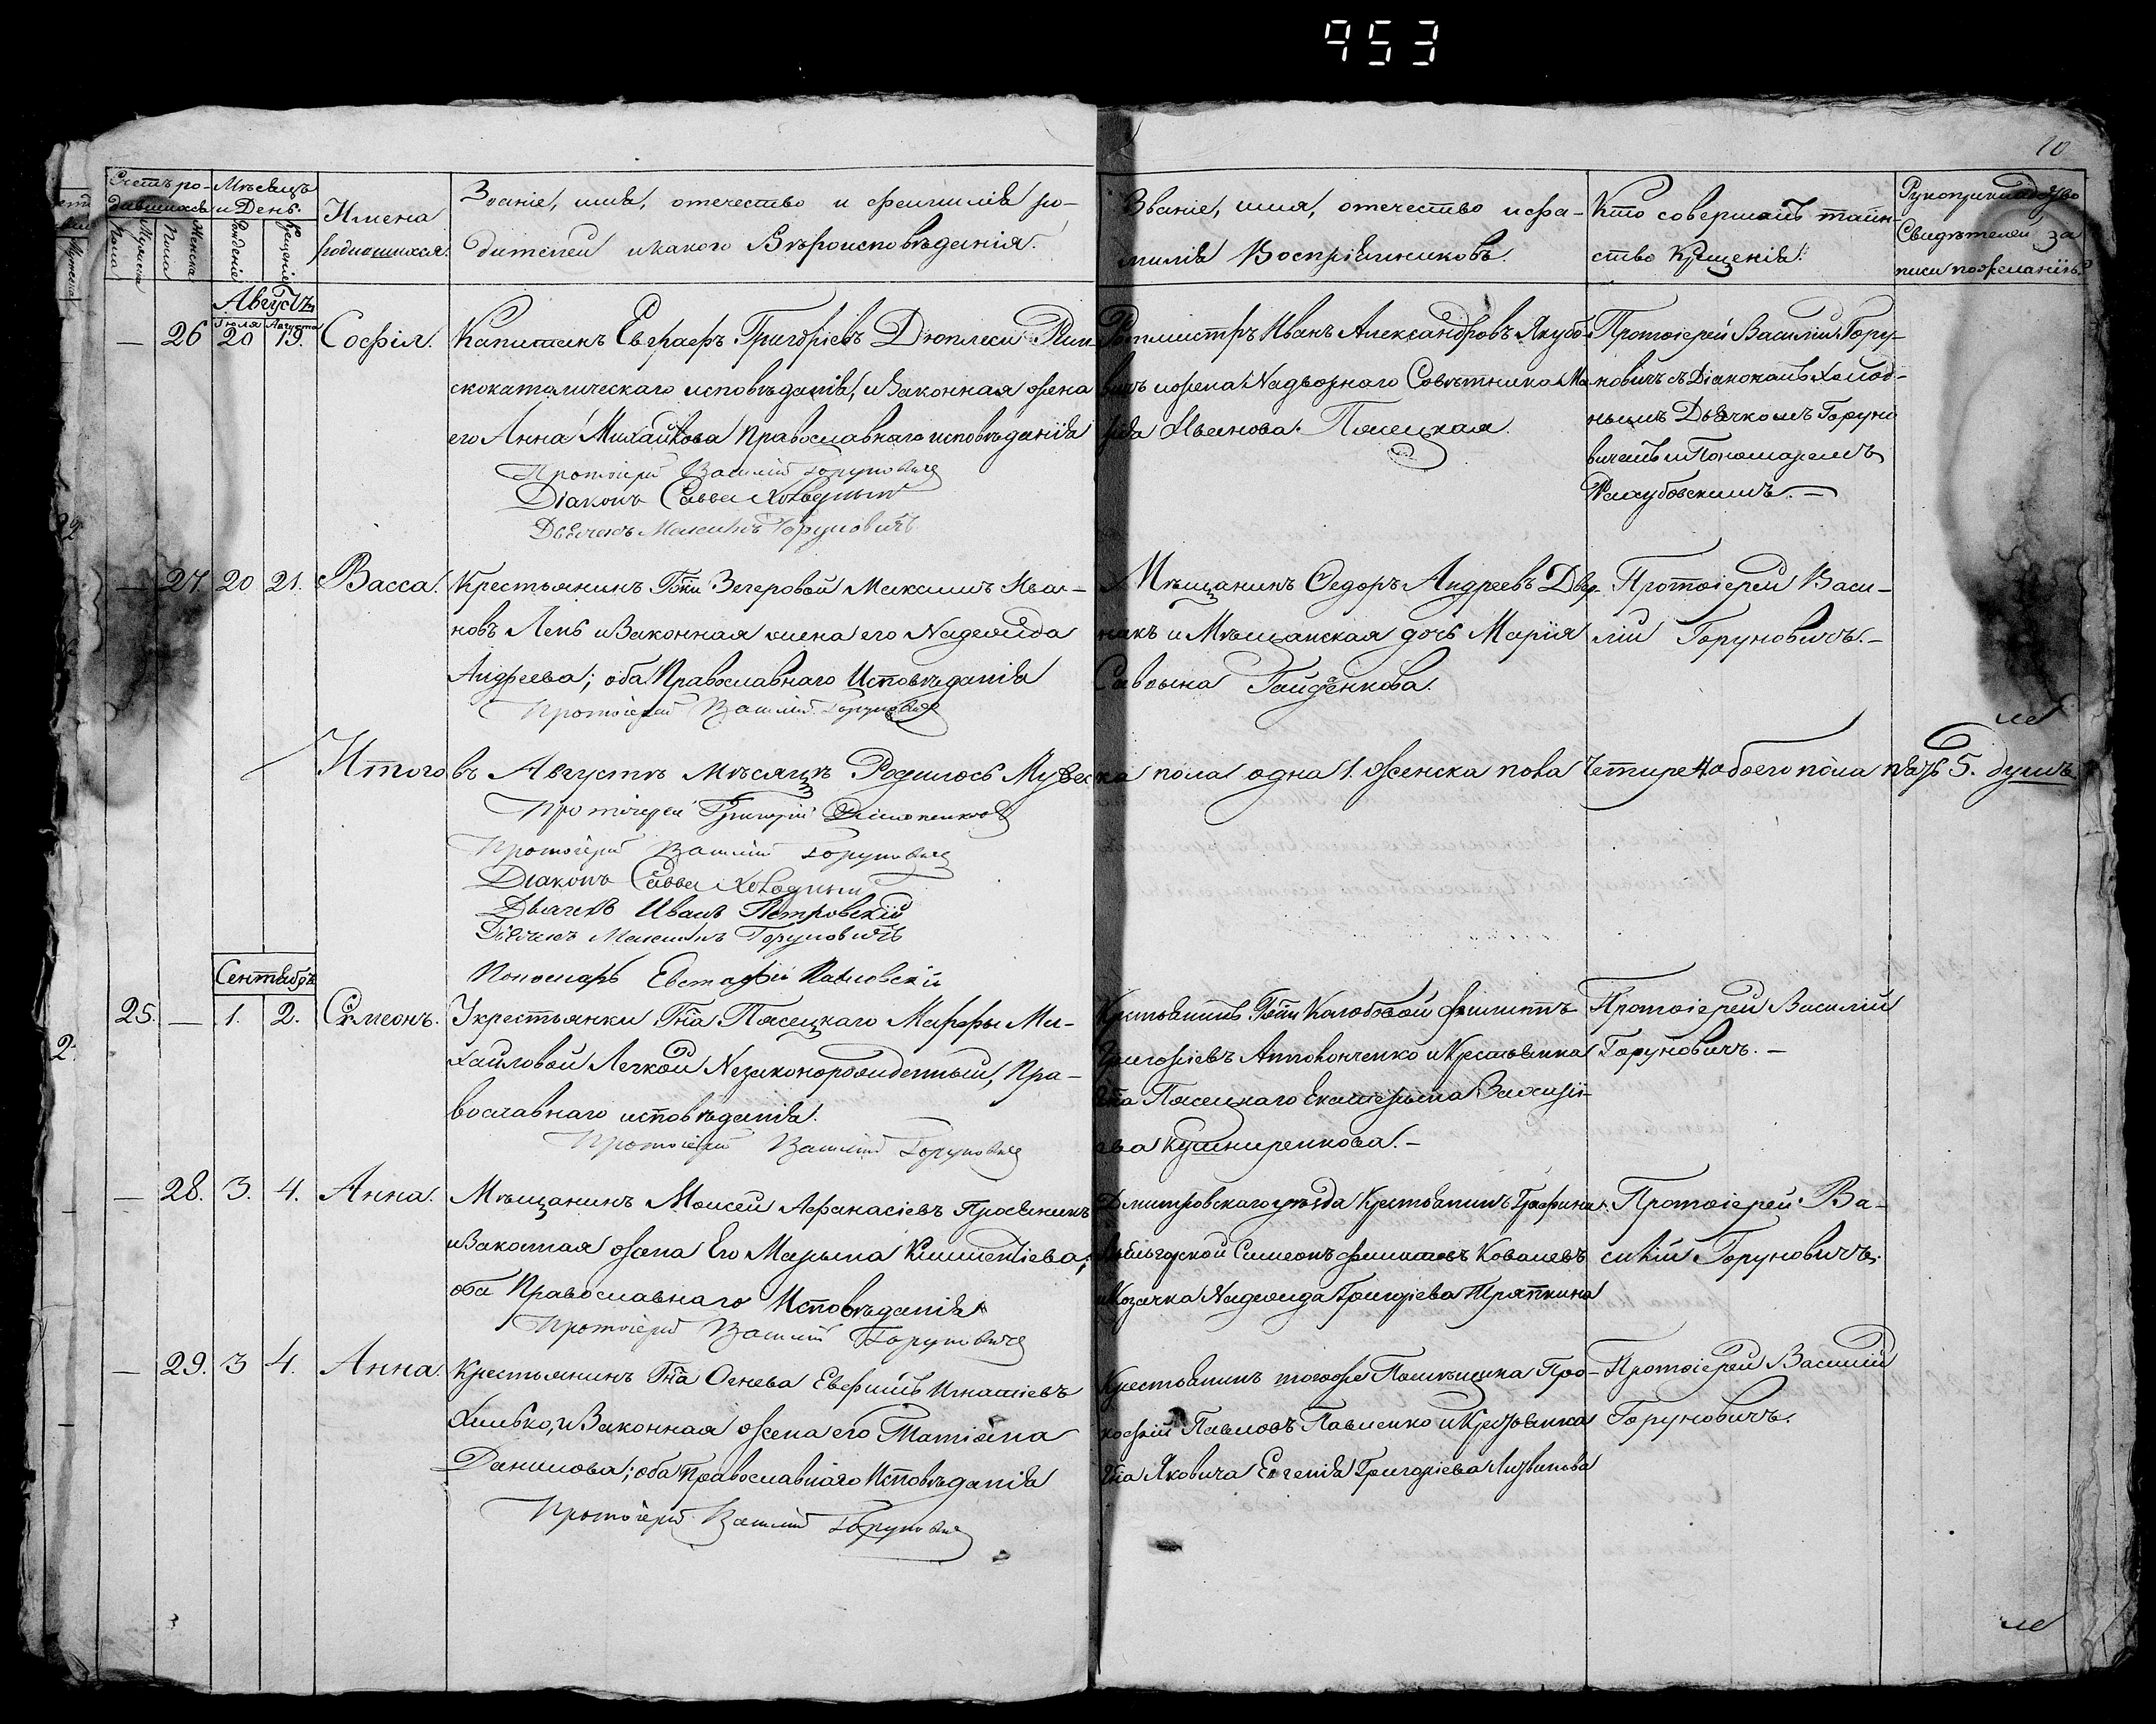 953
10
Счетъ ро-
дившихся
Мѣсяцъ
и День.
Мужеска
Пола
Женска
Пола
Рожденіе
Крещеніе
Имена
родившихся.
Званіе, имя, отечество и фамилія ро-
дителей и какого Вѣроисповѣданія.
Званіе, имя, отечество и фа-
милія Воспріемниковъ.
Кто совершалъ таин-
ство Крещенія.
Рукоприкладство
Свидѣтелей за
писи по желанію
Августъ
Іюля Августа
— 26 20 19. Софія.
Капитанъ Евграфъ Григоріевъ Дюплеси Рим
скокатолическаго исповѣданія, и Законная жена
его Анна Михайлова Православнаго исповѣданія
Протоіерей Василій Горуновичъ
Діаконъ Савва Холодный
Дьячекъ Максимъ Горуновичъ
Ротмистръ Иванъ Александровъ Якубо-
вичъ и жена Надворнаго Совѣтника Ма-
рія Иванова Пясецкая.
Протоіерей Василій Гору-
новичъ съ Діакономъ Холод-
нымъ Дьячкомъ Горуно
вичемъ и Пономаремъ
— 27. 20 21. Васса.
Крестьянинъ Гжи Зегеровой Максимъ Ива-
новъ Лень и Законная жена его Надежда
Андреева; оба Православнаго Исповѣданія
Протоіерей Василій Горуновичъ
Мѣщанинъ Ѳедоръ Андреевъ Двор-
накъ и Мѣщанская дочь Марія
Саввина Гайденкова.
Протоіерей Васи-
лій Горуновичъ.—
Итого въ Августѣ Мѣсяцѣ Родилось Мужес
ка пола одна 1. женска пола Четыре 4 обоего пола пять 5. душъ.
Протоіерей Григорій
Протоіерей Василій Горуновичъ
Діаконъ Савва Холодный
Дьячекъ Иванъ Петровскій
Дьячекъ Максимъ Горуновичъ
Пономарь Евстафій
Сентябрь
25. — 1. 2. Сѵмеонъ.
У крестьянки Гна Пясецкаго Марфы Ми-
хайловой Легкой Незаконорожденный, Пра-
вославнаго исповѣданія.
Протоіерей Василій Горуновичъ
Крестьянинъ Гжи Калюбовой Филиппъ
Григоріевъ Антонченко и Крестьянка
Гна Пясецкаго Екатерина Василі-
ева Кушниренкова.—
Протоіерей Василій
Горуновичъ.—
— 28. 3. 4. Анна.
Мѣщанинъ Моисей Афанасіевъ Просяникъ
и Законная жена Его Марьяна Климентіева;
оба Православнаго Исповѣданія
Протоіерей Василій Горуновичъ
Дмитровскаго уѣзда Крестьянинъ Графини
Симеонъ Филиповъ Ковалевъ
и Козачка Надежда Григоріева Тряпкина
Протоіерей Ва-
силій Горуновичъ.
— 29. 3 4. Анна.
Крестьянинъ Гна Огнева Евфимъ Игнатіевъ
Хилько, и Законная жена его Татіана
Данилова; оба Православнаго Исповѣданія
Протоіерей Василій Горуновичъ
Крестьянинъ тогоже Помѣщика Про-
кофій Павловъ Павленко и Крестьянка
Гна Яковича Евгенія Григоріева Литвинова
Протоіерей Василій
Горуновичъ.